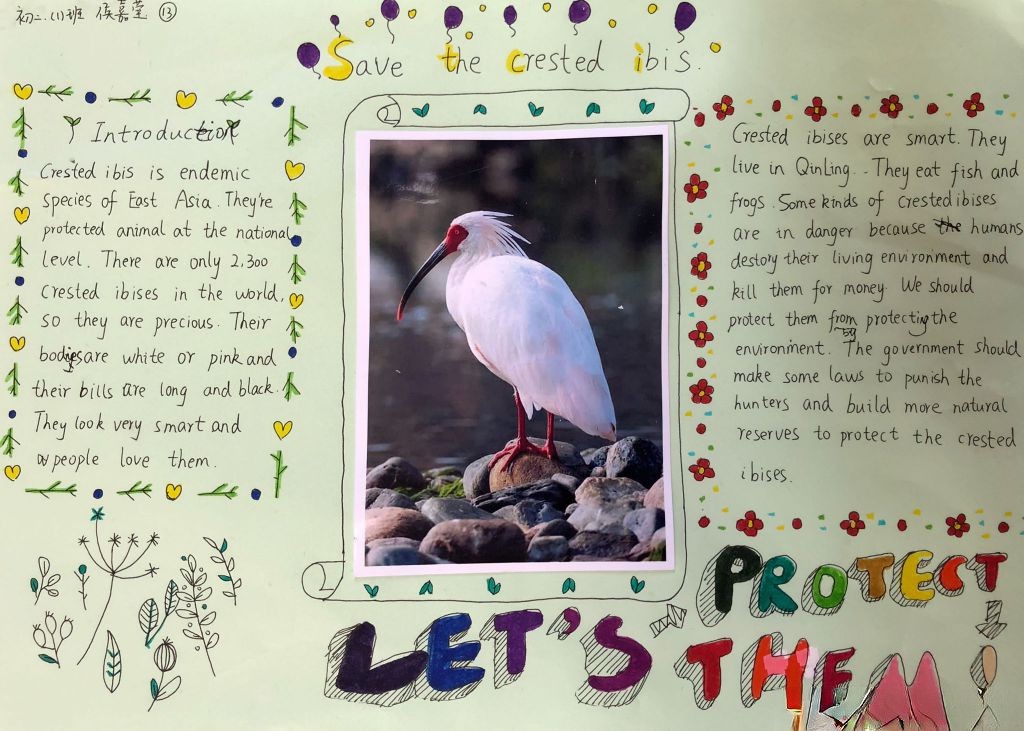 初二.(1)班 侯嘉莹 ⑬
Save the crested ibis.
Introduction
Crested ibis is endemic
species of East Asia. They're
protected animal at the national
level. There are only 2,300
crested ibises in the world,
so they are precious. Their
bodies are white or pink and
their bills are long and black.
They look very smart and
people love them.
Crested ibises are smart. They
live in QinLing. They eat fish and
frogs. Some kinds of crested ibises
are in danger because humans
destory their living environment and
kill them for money. We should
protect them by protecting the
environment. The government should
make some laws to punish the
hunters and build more natural
reserves to protect the crested
ibises.
LET'S PROTECT
THEM